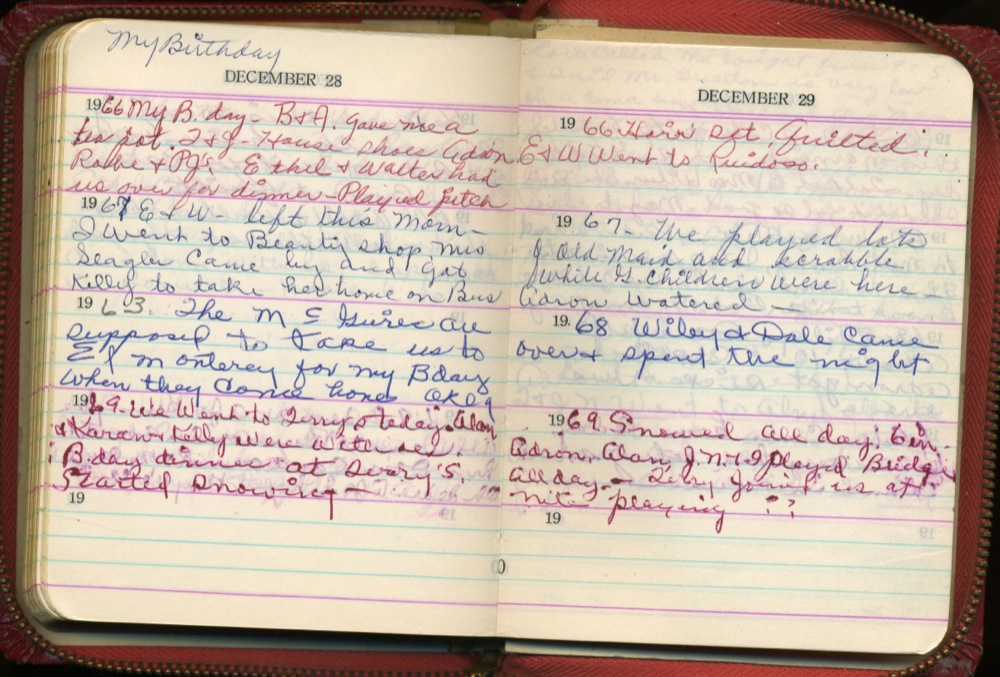 My Birthday
DECEMBER 28
1966 My B. day - B & A. gave me a
tea pot. I & J - House shoes Adron
Robe & PJ's. Ethel & Walter had
us over for dinner - Played pitch
1967 E & W - left this Morn -
I went to Beauty shop Mrs
Seagler Came by and got
Kelly to take her home on Bus
The M
supposed to take us to
El Monterey for my Bday
when they come home
1969 - We Went to Terry's today. Alan
& Karan & Kelly were with us.
B.day dinner at
Started snowing -
19
DECEMBER 29
1966 Hair set. Quilted.
E & W Went to Ruidoso.
1967 - We played lots
of Old Maid and scrabble
while G. Children were here -
Adron Watered -
19.68 Wiley & Dale Came
over & spent the night
1969. Snowed all day.
Adron, Alan, J.N. & I played Bridge
all day - Terry joined us at
nite playing ??
19